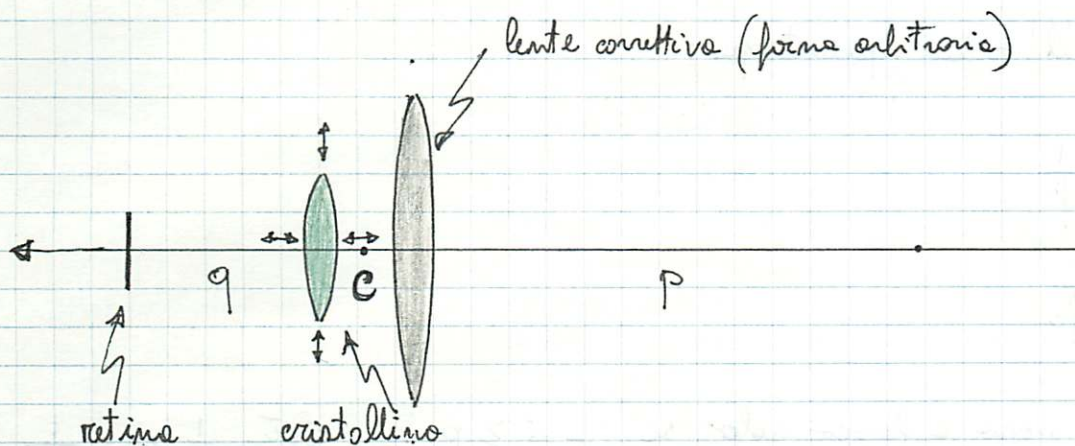 lente correttiva (forma arbitraria)
q
C
p
retina
cristallino